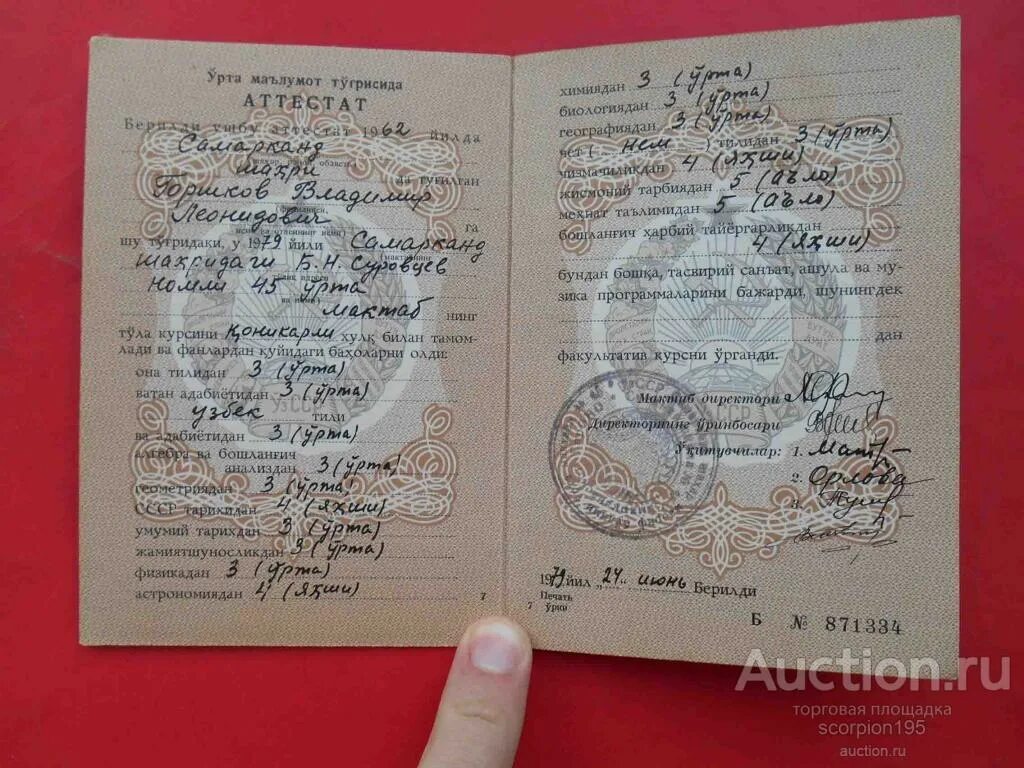 Ўрта маълумот тўғрисида
АТТЕСТАТ
Берилди ушбу аттестат 1962 йилда
Самарканд
шаҳри
Горшков Владимир да туғилган
Леонидович га
шу тўғридаки, у 1979 йили Самарканд
шаҳридаги Б. Н. Суровцев
номли 45 ўрта
мактаб нинг
тўла курсини қониқарли хулқ билан тамом-
лади ва фанлардан қуйидаги баҳоларни олди:
она тилидан 3 (ўрта)
ватан адабиётидан 3 (ўрта)
узбек тили
ва адабиётидан 3 (ўрта)
алгебра ва бошланғич
анализдан 3 (ўрта)
геометриядан 3 (ўрта)
СССР тарихидан 4 (яҳши)
умумий тарихдан 3 (ўрта)
жамиятшуносликдан 3 (ўрта)
физикадан 3 (ўрта)
астрономиядан 4 (яҳши)
7
химиядан 3 (ўрта)
биологиядан 3 (ўрта)
географиядан 3 (ўрта)
чет ( нем ) тилидан 3 (ўрта)
чизмачиликдан 4 (яҳши)
жисмоний тарбиядан 5 (аъло)
меҳнат таълимидан 5 (аъло)
бошланғич ҳарбий тайёргарликдан
4 (яҳши)
бундан бошқа, тасвирий санъат, ашула ва му-
зика программаларини бажарди, шунингдек
дан
факультатив курсни ўрганди.
Мактаб директори
Директорнинг ўринбосари
Ўқитувчилар: 1.
2. Орлова
3.
1979 йил „24" июнь Берилди
Печать
ўрни
7
Б № 871334
УзССР
Auction.ru
торговая площадка
scorpion195
auction.ru